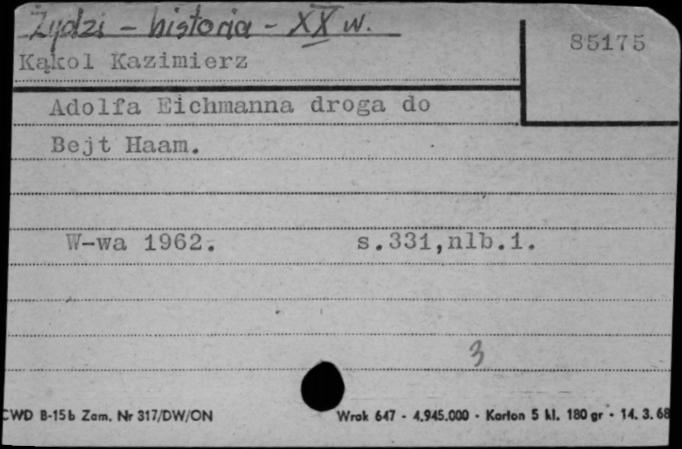 Żydzi - historia - XX w.
85175
Kąkol Kazimierz
Adolfa Eichmanna droga do
Bejt Haam.
W-wa 1962. s.331,nlb.1.
3
CWD B-15b Zam. Nr 317/DW/ON Wrak 647 - 4.945.000 - Karton 5 kl. 180 gr - 14. 3. 68